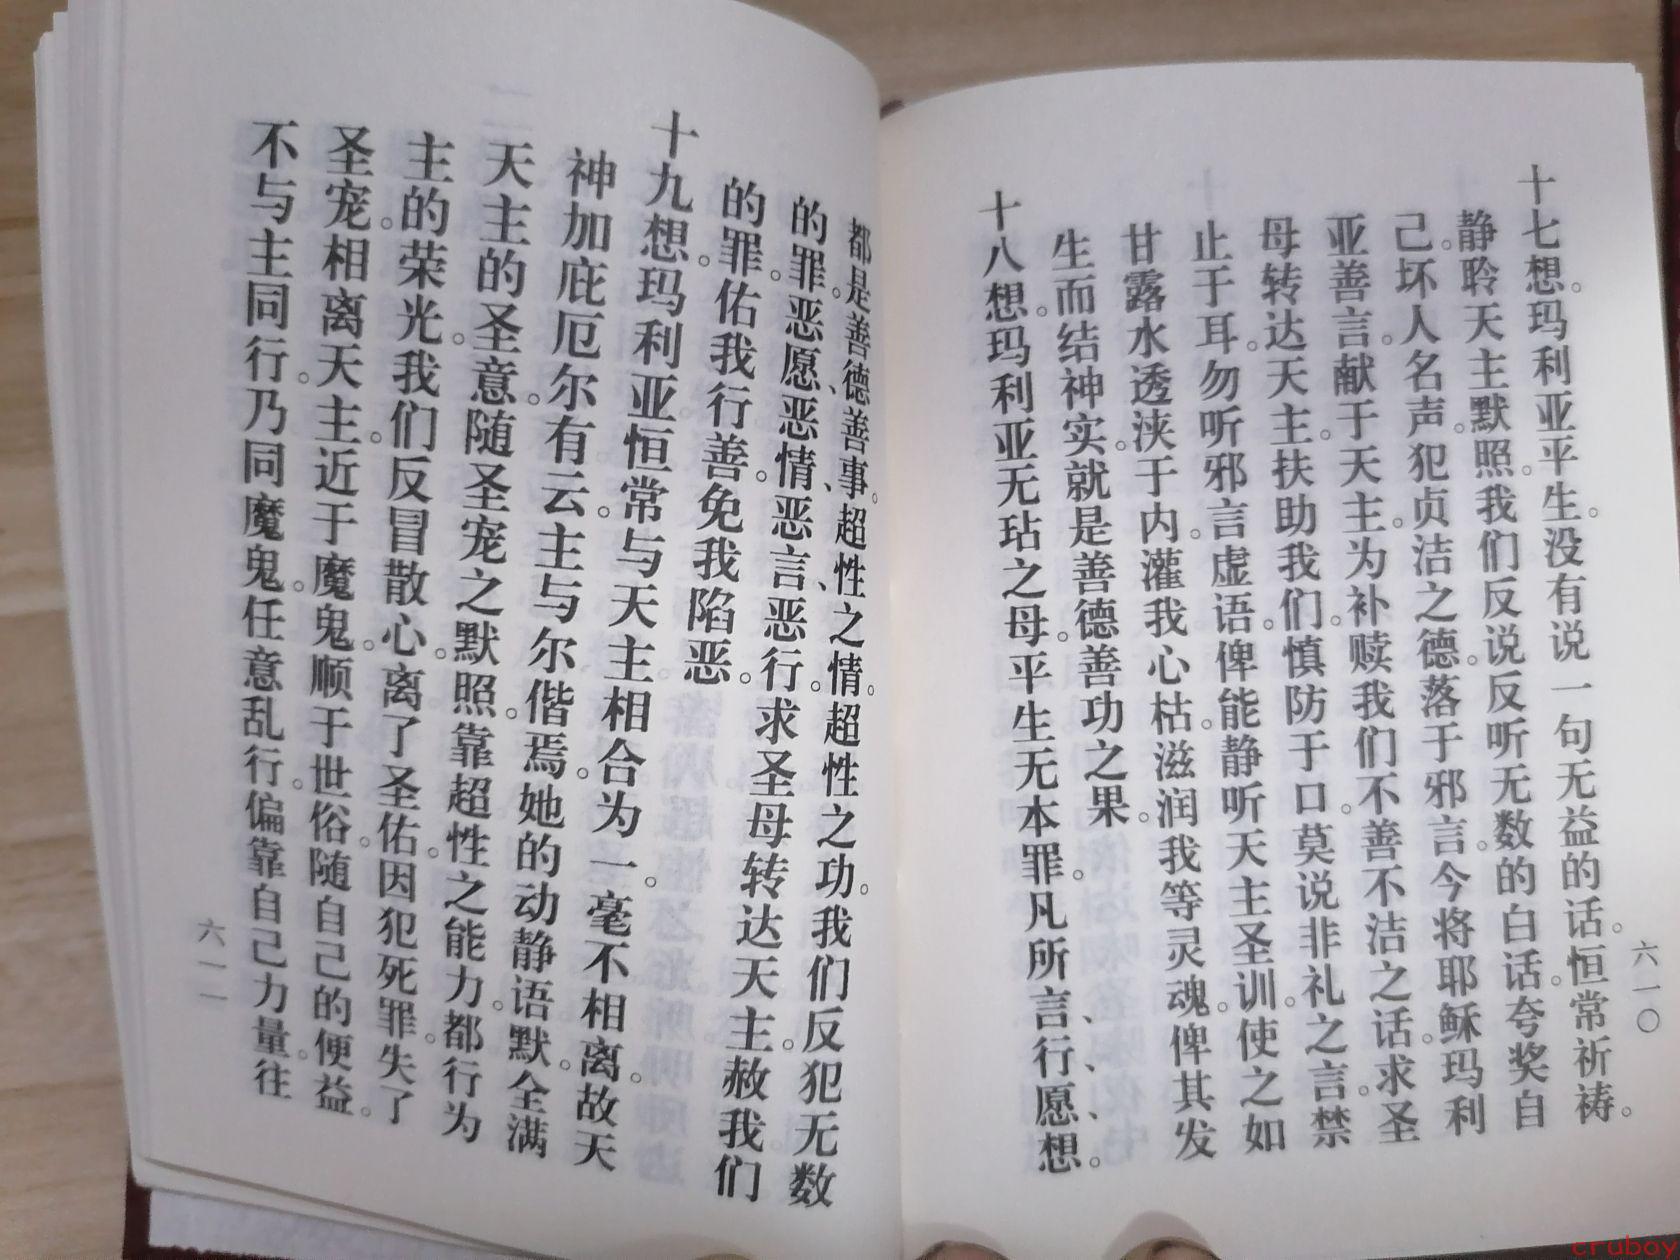 十七想。玛利亚平生。没有说一句无益的话。恒常祈祷。
静聆天主默照。我们反说反听无数的白话。夸奖自
己。坏人名声。犯贞洁之德。落于邪言。今将耶稣玛利
亚善言。献于天主。为补赎我们不善不洁之话。求圣
母转达天主。扶助我们。慎防于口。莫说非礼之言。禁
止于耳。勿听邪言虚语。俾能静听天主圣训。使之如
甘露水透浃于内。灌我心枯。滋润我等灵魂。俾其发
生而结神实。就是善德善功之果。
十八想。玛利亚无玷之母。平生无本罪。凡所言、行愿、想。
六一〇
都是善德善事。超性之情。超性之功。我们反犯无数
的罪。恶愿、恶情、恶言、恶行。求圣母转达天主。赦我们
的罪。佑我行善。免我陷恶。
十九想。玛利亚。恒常与天主相合为一。毫不相离。故天
神加庇厄尔有云。主与尔偕焉。她的动静语默。全满
天主的圣意。随圣宠之默照。靠超性之能力。都行为
主的荣光。我们反冒散心。离了圣佑。因犯死罪。失了
圣宠。相离天主。近于魔鬼。顺于世俗。随自己的便益。
不与主同行。乃同魔鬼。任意乱行。偏靠自己力量。往
六一一
cruboy